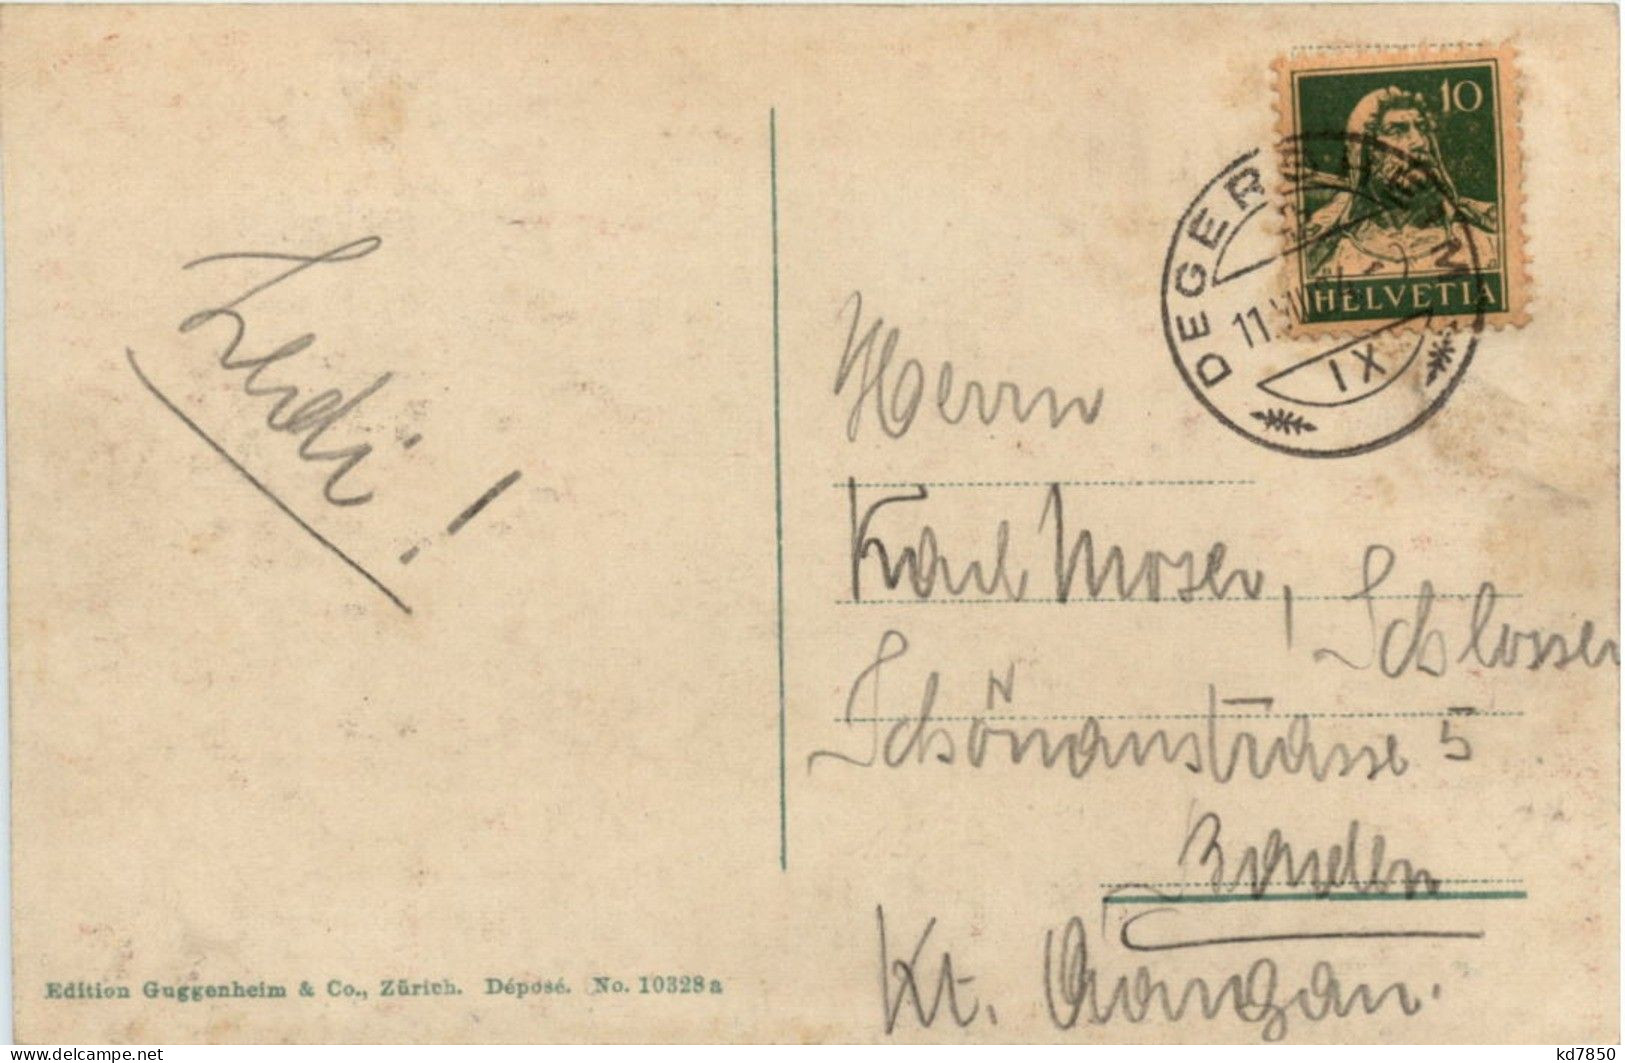 10
HELVETIA
DEGERSHEIM
11.
IX
Herrn
Karl Moser, Schlosser
Schönaustrasse 5
Baden
Kt. Aargau.
Edition Guggenheim & Co., Zürich. Déposé. No. 10328 a
kd7850